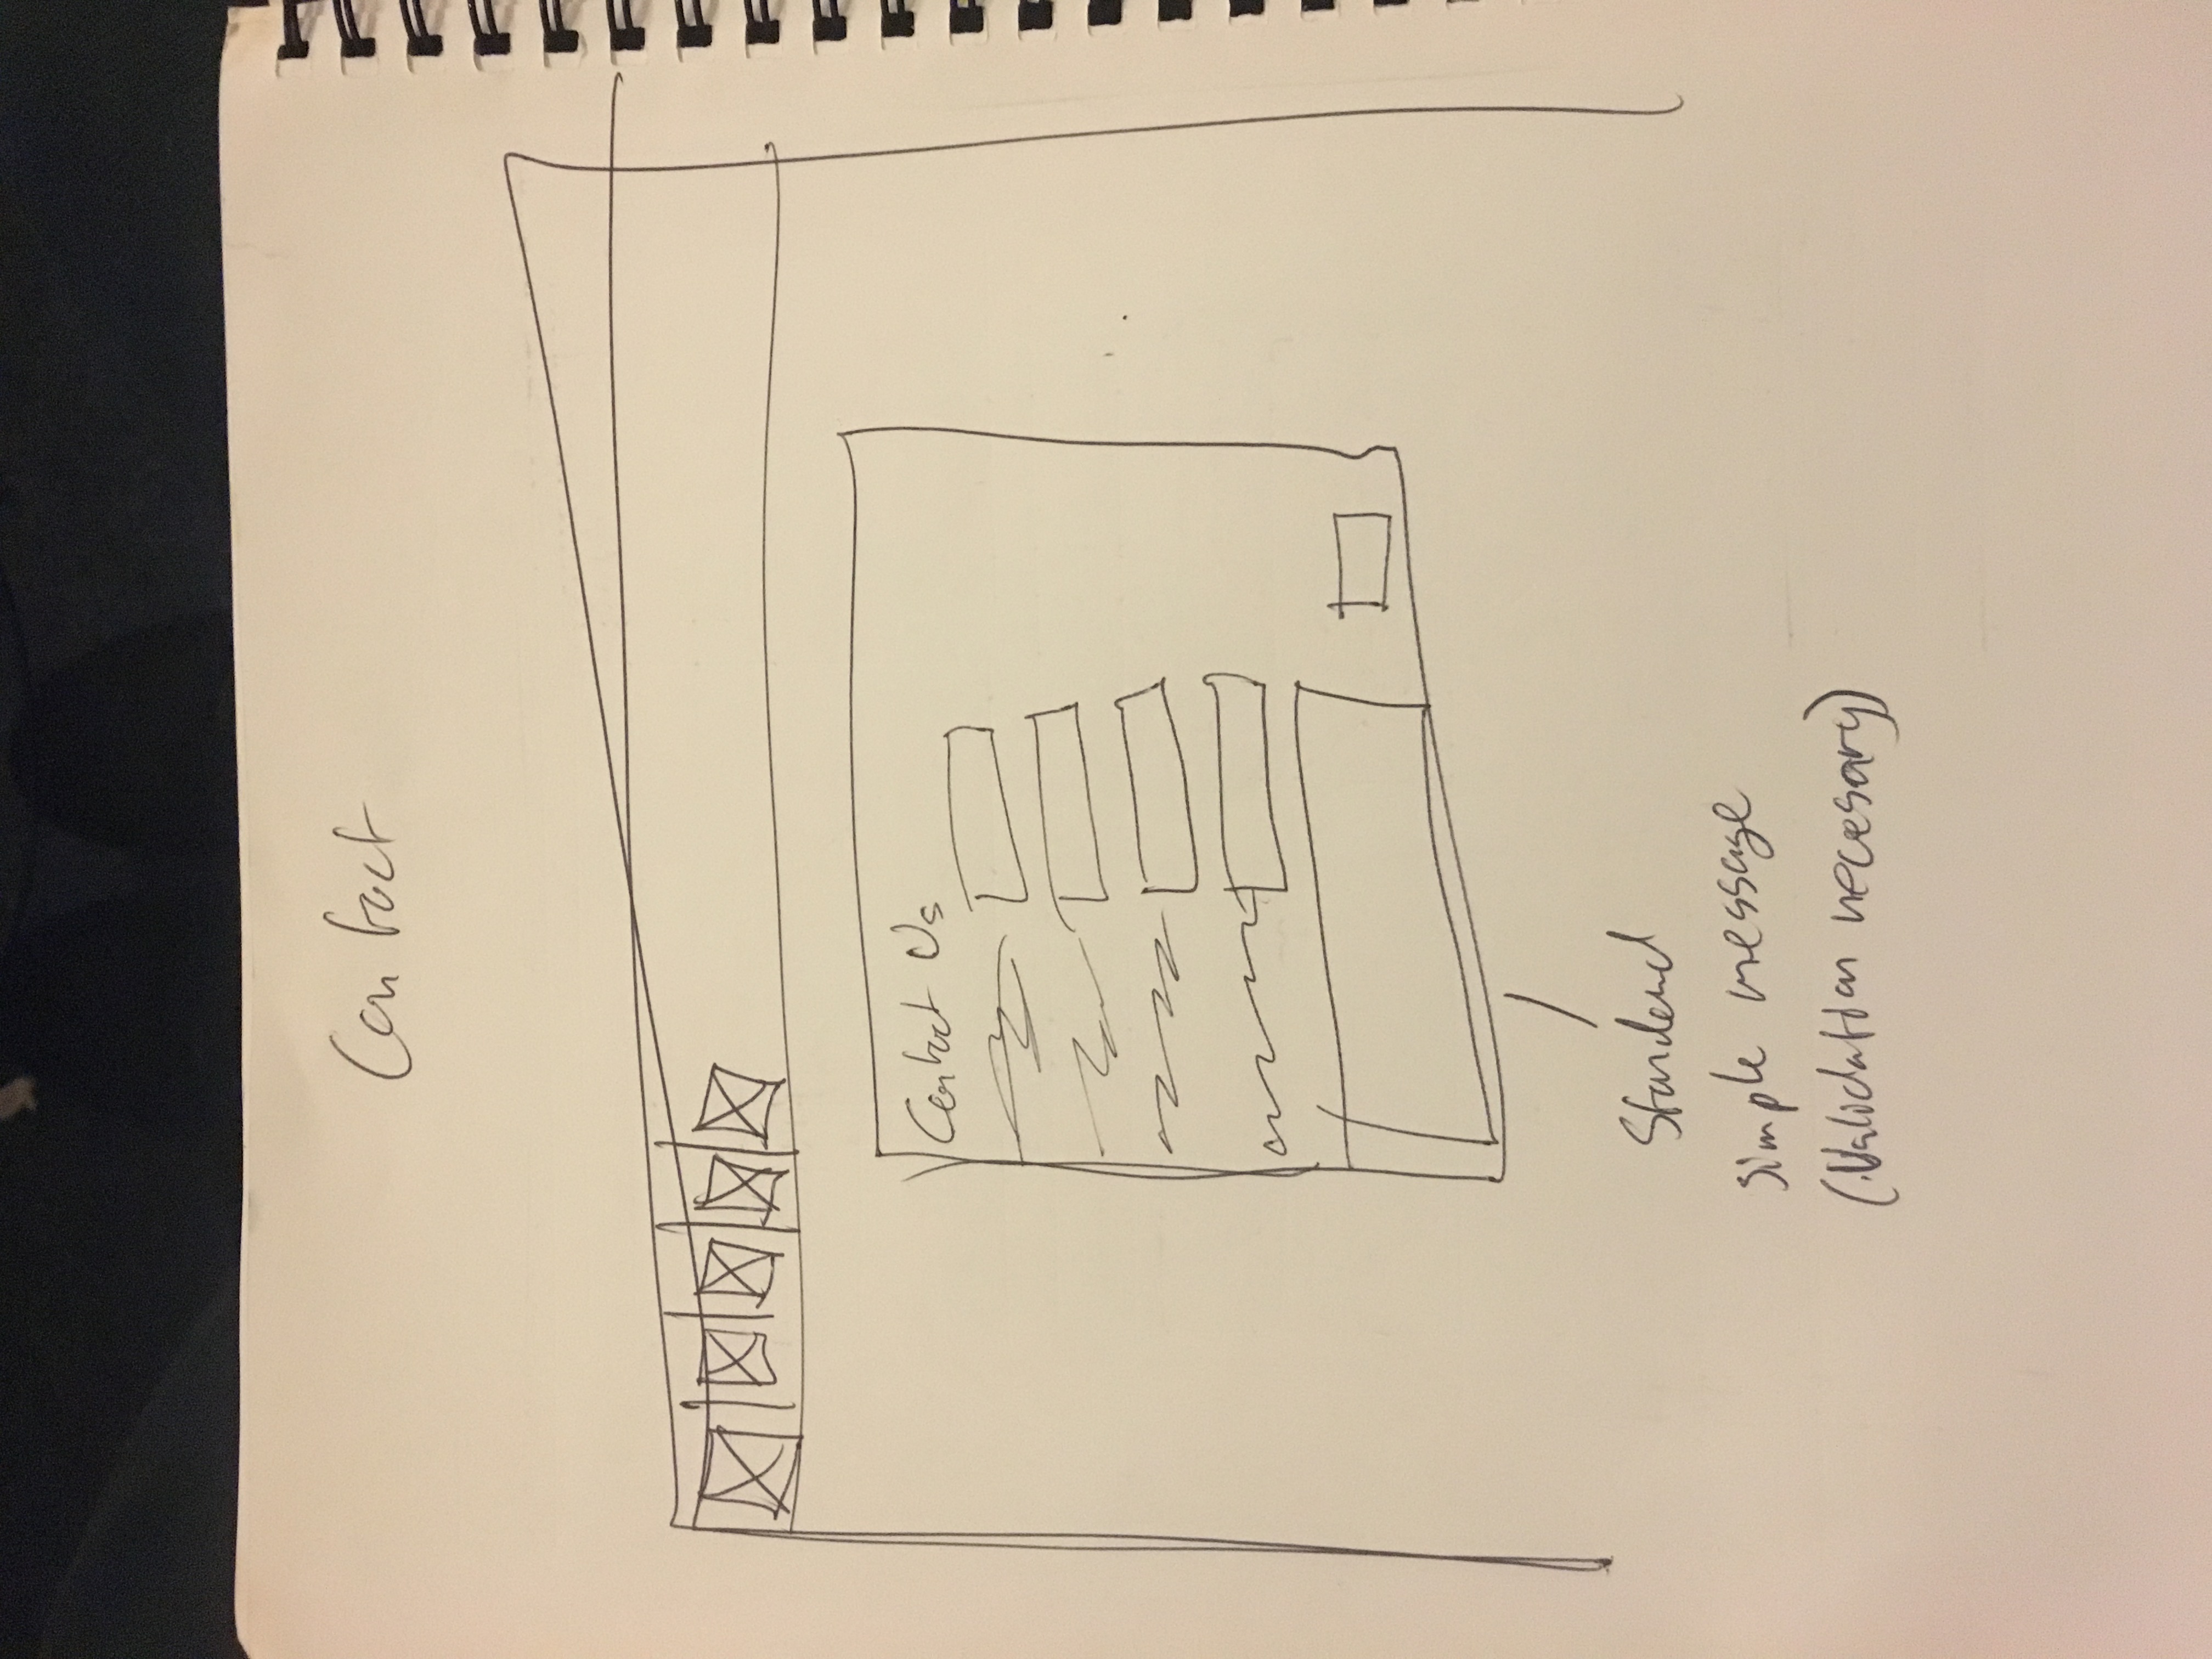 Contact
Contact Us
Standard
simple message
(Validation necesary)